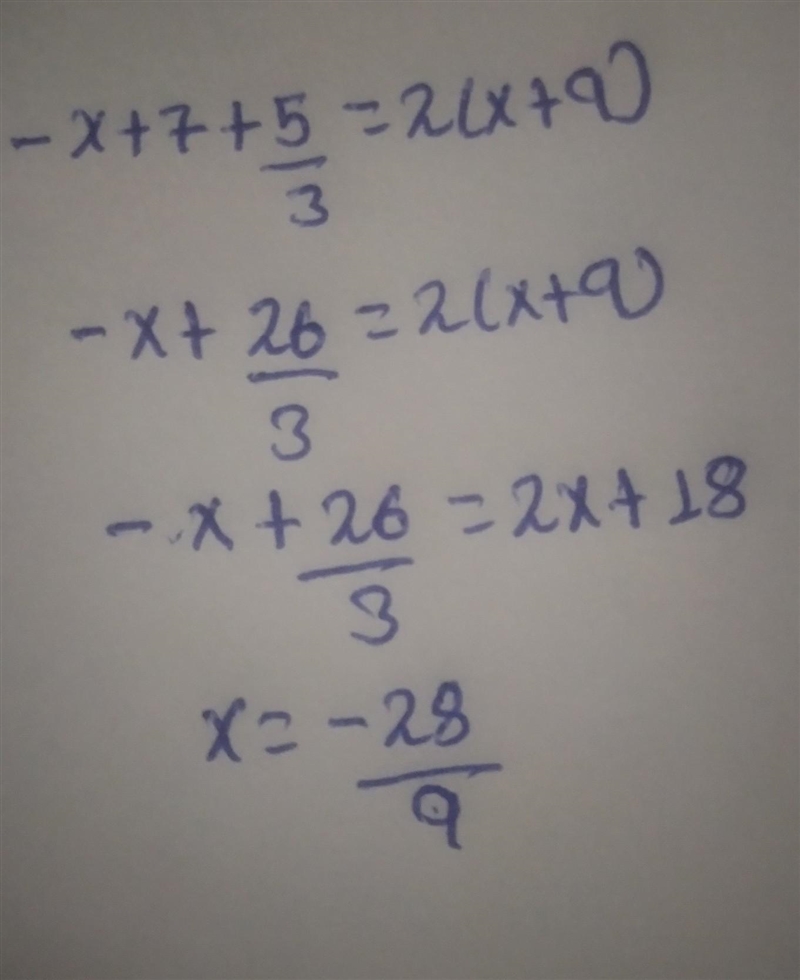 -x+7+5/3=2(x+9)
-x+26/3=2(x+9)
-x+26/3=2x+18
x=-28/9